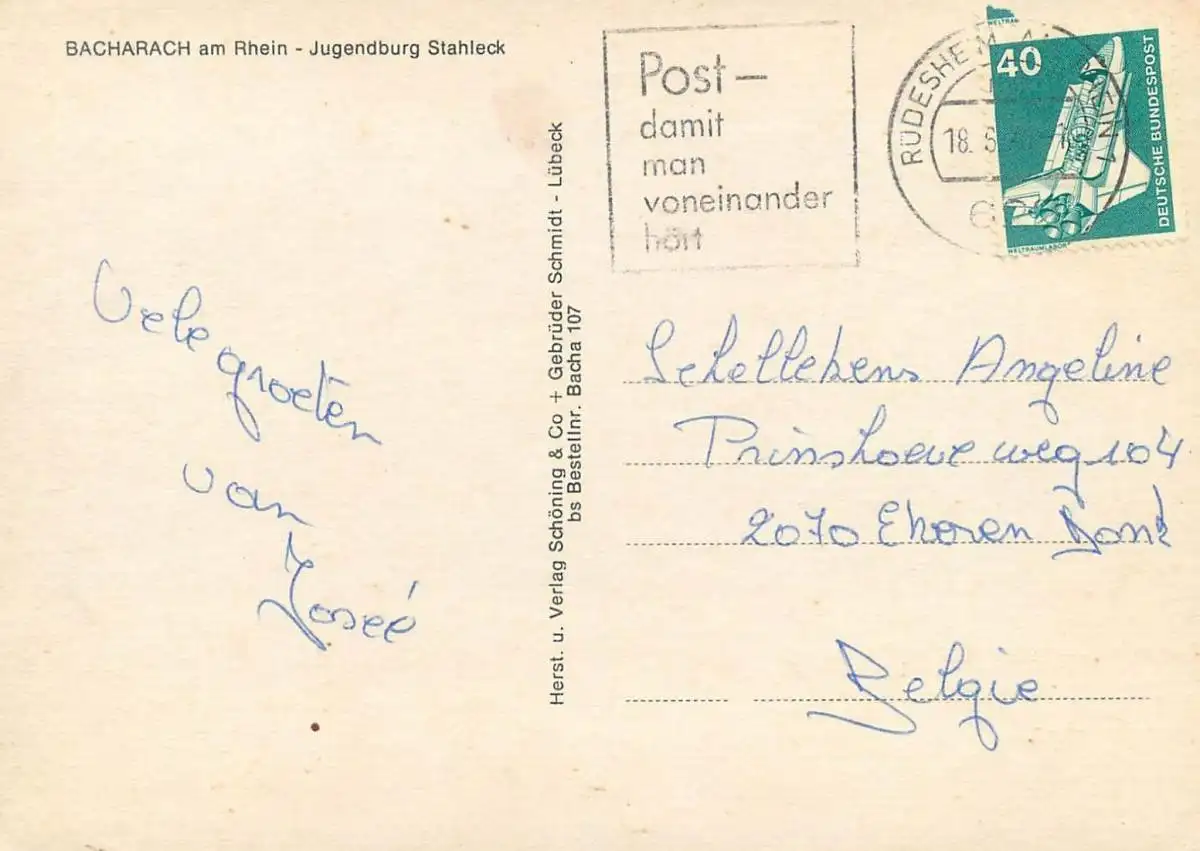 BACHARACH am Rhein - Jugendburg Stahleck
Post -
damit
man
voneinander
hört
RÜDESHEIM AM RHEIN 1
18. 6
WELTRAUM
40
DEUTSCHE BUNDESPOST
WELTRAUMLABOR
Vele groeten
van
Joseé
Herst. u. Verlag Schöning & Co + Gebrüder Schmidt - Lübeck
bs Bestellnr. Bacha 107
Schellekens Angeline
Prinshoeveweg 104
2070 Ekeren Donk
Belgie